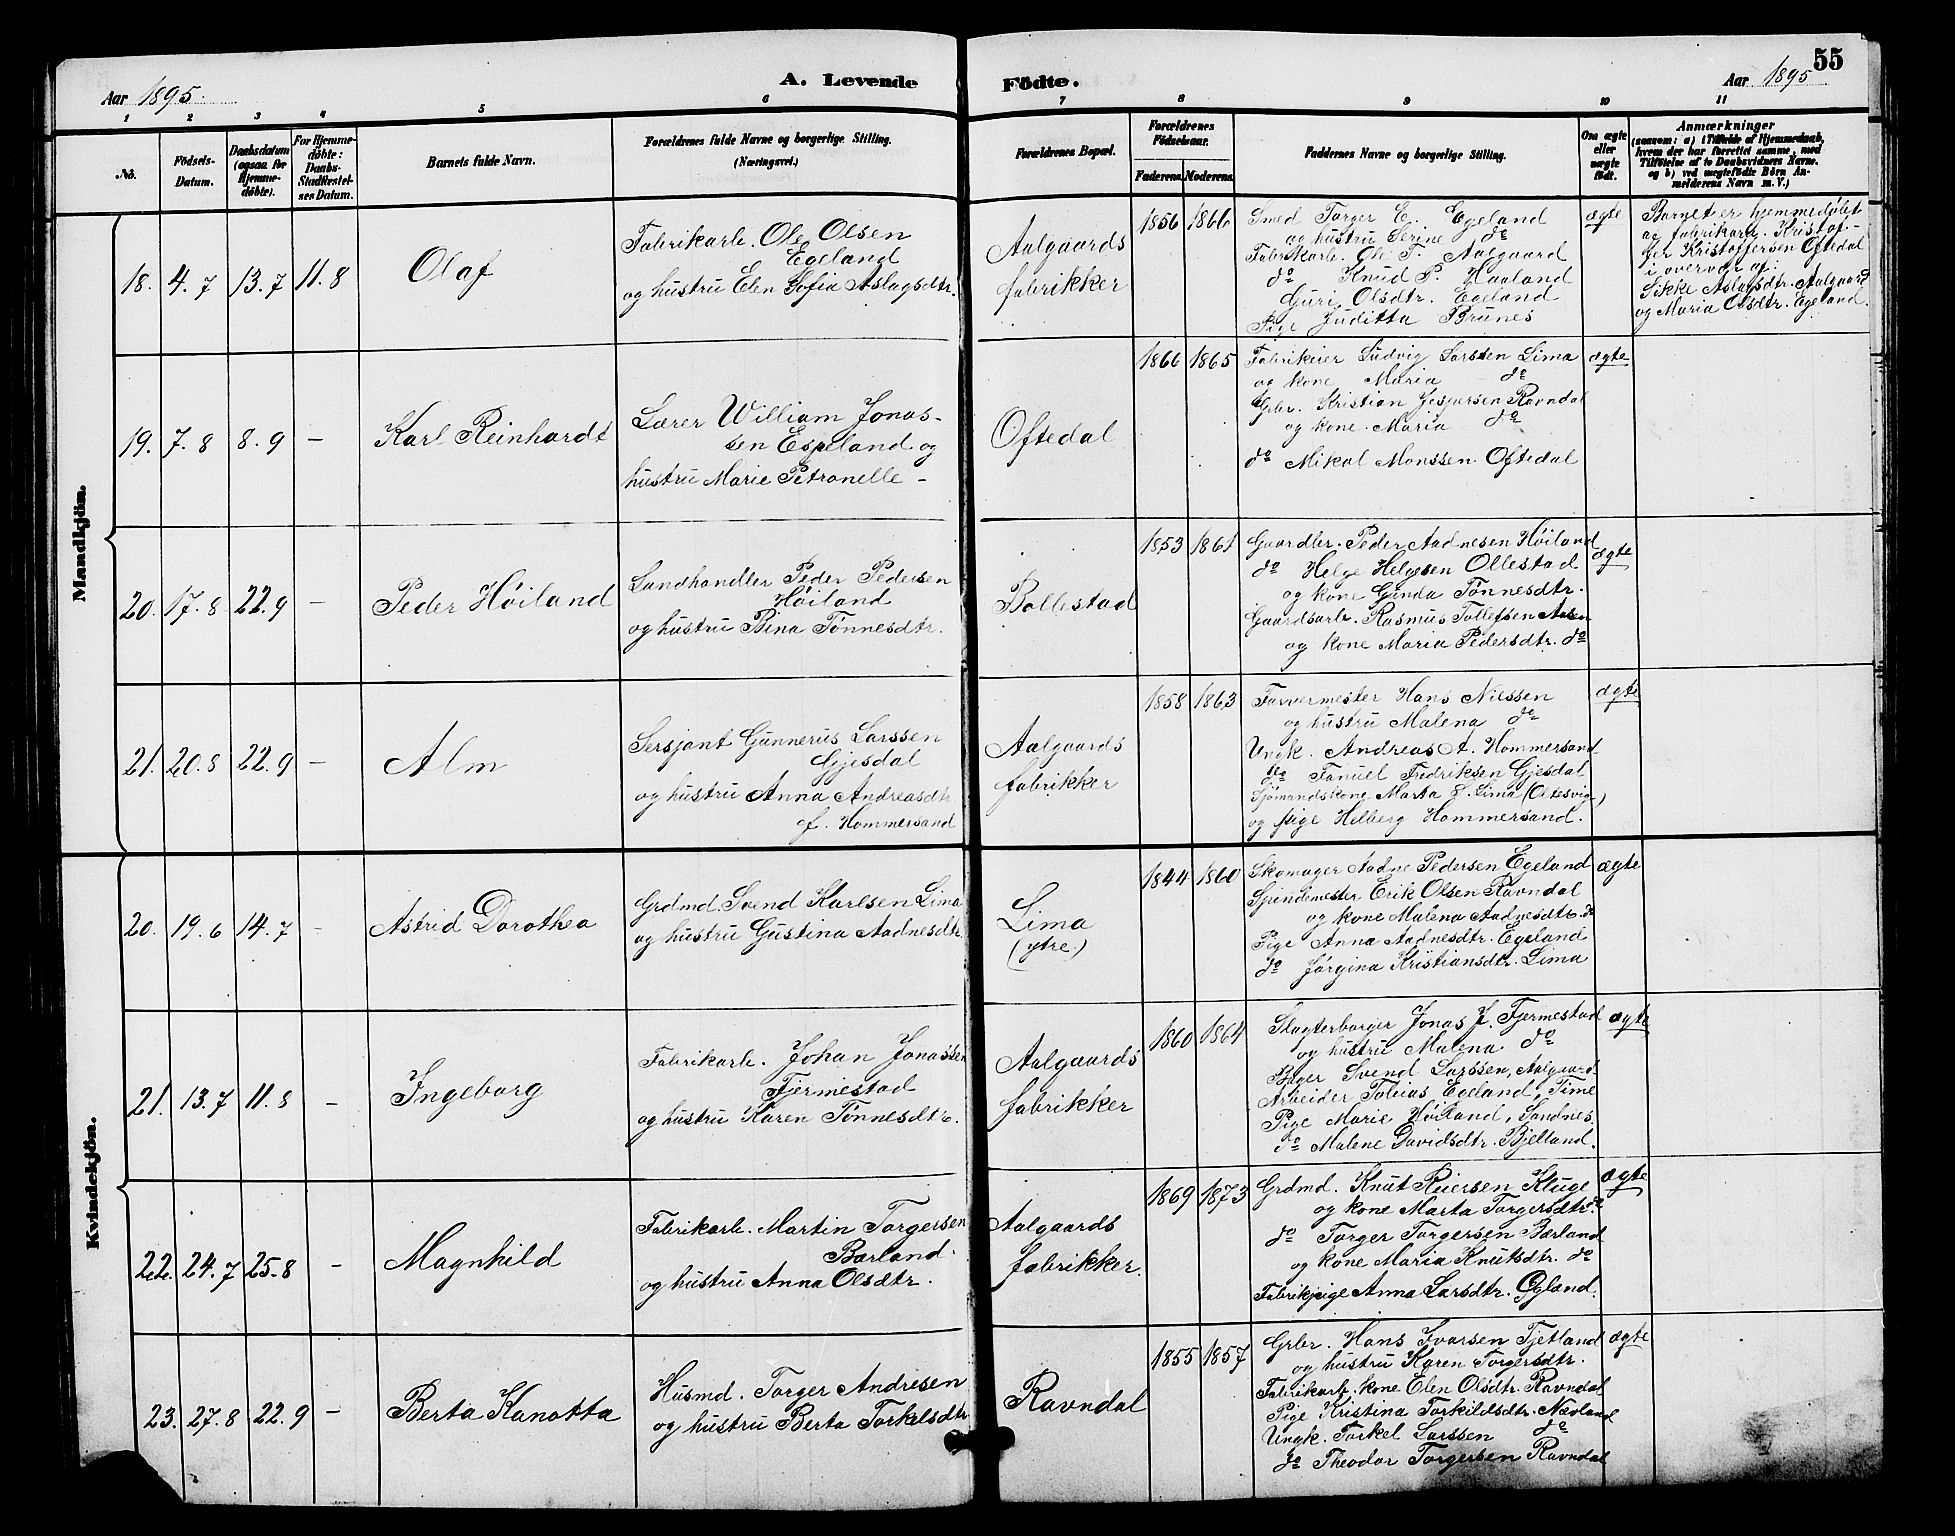 55
Aar 1895.
A. Levende
Födte.
Aar 1895
1 2 3 4 5 6 7 8 9 10 11
No.
Födsels-
Datum.
Daabsdatum
(ogsaa for
Hjemme-
döbte).
For Hjemme-
döbte:
Daabs-
Stadfæstel-
ses Datum.
Barnets fulde Navn.
Forældrenes fulde Navne og borgerlige Stilling.
(Næringsvei.)
Forældrenes Bopæl.
Forældrenes
Födselsaar.
Faderens. Moderens.
Faddernes Navne og borgerlige Stilling.
Om ægte
eller
uægte
födt.
Anmærkninger
(saasom: a) i Tilfælde af Hjemmedaab,
hvem der har forrettet samme, med
Tilföielse af to Daabsvidners Navne,
og b) ved uægtefödte Börn An-
melderens Navn m. V.)
Mandkjön.
18. 4.7 13.7 11.8
Olaf
Fabrikarb. Ole Olsen
Egeland
og hustru Elen Sofia Aslagsdtr.
Aalgaards
fabrikker
1856 1866
Smed Torger E. Egeland
og hustru Serine do
Fabrikarb. Ole T. Aalgaard
do Knud P. Haaland
Guri Olsdtr. Egeland
Pige Juditta Brunes
ægte
Barnet er hjemmedøbt
af fabrikarb. Kristof-
fer Kristoffersen Oftedal
i overvær af:
Sikke Aslagsdtr. Aalgaard
og Maria Olsdtr. Egeland.
19. 7.8 8.9 –
Karl Reinhardt
Lærer William Jonas-
sen Espeland og
hustru Marie Petronelle –
Oftedal
1866 1865
Fabrikeier Ludvig Larssen Lima
og kone Maria do
Grbr. Kristian Jespersen Ravndal
og kone Maria do
do Mikal Monssen Oftedal
ægte
20. 17.8 22.9 –
Peder Høiland
Landhandler Peder Pedersen
Høiland
og hustru Bina Tønnesdtr.
Bollestad
1853 1861
Gaardbr. Peder Aadnesen Høiland
do Helge Helgesen Ollestad
og kone Ginda Tønnesdtr.
Gaardsarb. Rasmus Tollefsen Aasen
og kone Maria Pedersdtr. do
ægte
21. 20.8 22.9 –
Alm
Sersjant Gunnerus Larssen
Gjesdal
og hustru Anna Andreasdtr
f. Hommersand
Aalgaards
fabrikker
1858 1863
Farvermester Hans Nilssen
og hustru Malena do
Ungk. Andreas A. Hommersand
do Fanuel Fredriksen Gjesdal
Sjømandskone Marta S. Lima (Oltesvig)
og pige Hilberg Hommersand.
ægte
Kvindekjön.
20. 19.6 14.7 –
Astrid Dorothea
Grdmd. Svend Karlsen Lima
og hustru Gustina Aadnesdtr.
Lima
(ytre.)
1844 1860
Skomager Aadne Pedersen Egeland
Spindemester Erik Olsen Ravndal
og kone Malena Aadnesdtr. do
Pige Anna Aadnesdtr. Egeland
do Jørgina Kristiansdtr. Lima
ægte
21. 13.7 11.8 –
Ingeborg
Fabrikarb. Johan Jonassen
Fjermestad
og hustru Karen Tønnesdtr.
Aalgaards
fabrikker
1860 1864
Slagterborger Jonas J. Fjermestad
og hustru Malena do
Bager Svend Larssen, Aalgaard
Arbeider Tobias Egeland, Time
Pige Marie Høiland, Sandnes
do Malene Davidsdtr. Bjelland.
ægte
22. 24.7 25.8 –
Magnhild
Fabrikarb. Martin Torgersen
Bærland.
og hustru Anna Olsdtr.
Aalgaards
fabrikker.
1869 1873
Grdmd. Knut Reiersen Kluge
og kone Marta Torgersdtr. do
do Torger Torgersen Bærland
og kone Maria Knutsdtr. do
Fabrikpige Anna Larsdtr. Øgland.
ægte
23. 27.8 22.9 –
Berta Kanotta
Husmd. Torger Andresen
og hustru Berta Torkelsdtr
Ravndal
1855 1857
Grbr. Hans Ivarsen Tjetland
og hustru Karen Torgersdtr.
Fabrikarb. kone Elen Olsdtr. Ravndal
Pige Kristina Torkildsdtr. Nævland
Ungk. Torkel Larssen do
do Theodor Torgersen Ravndal
ægte